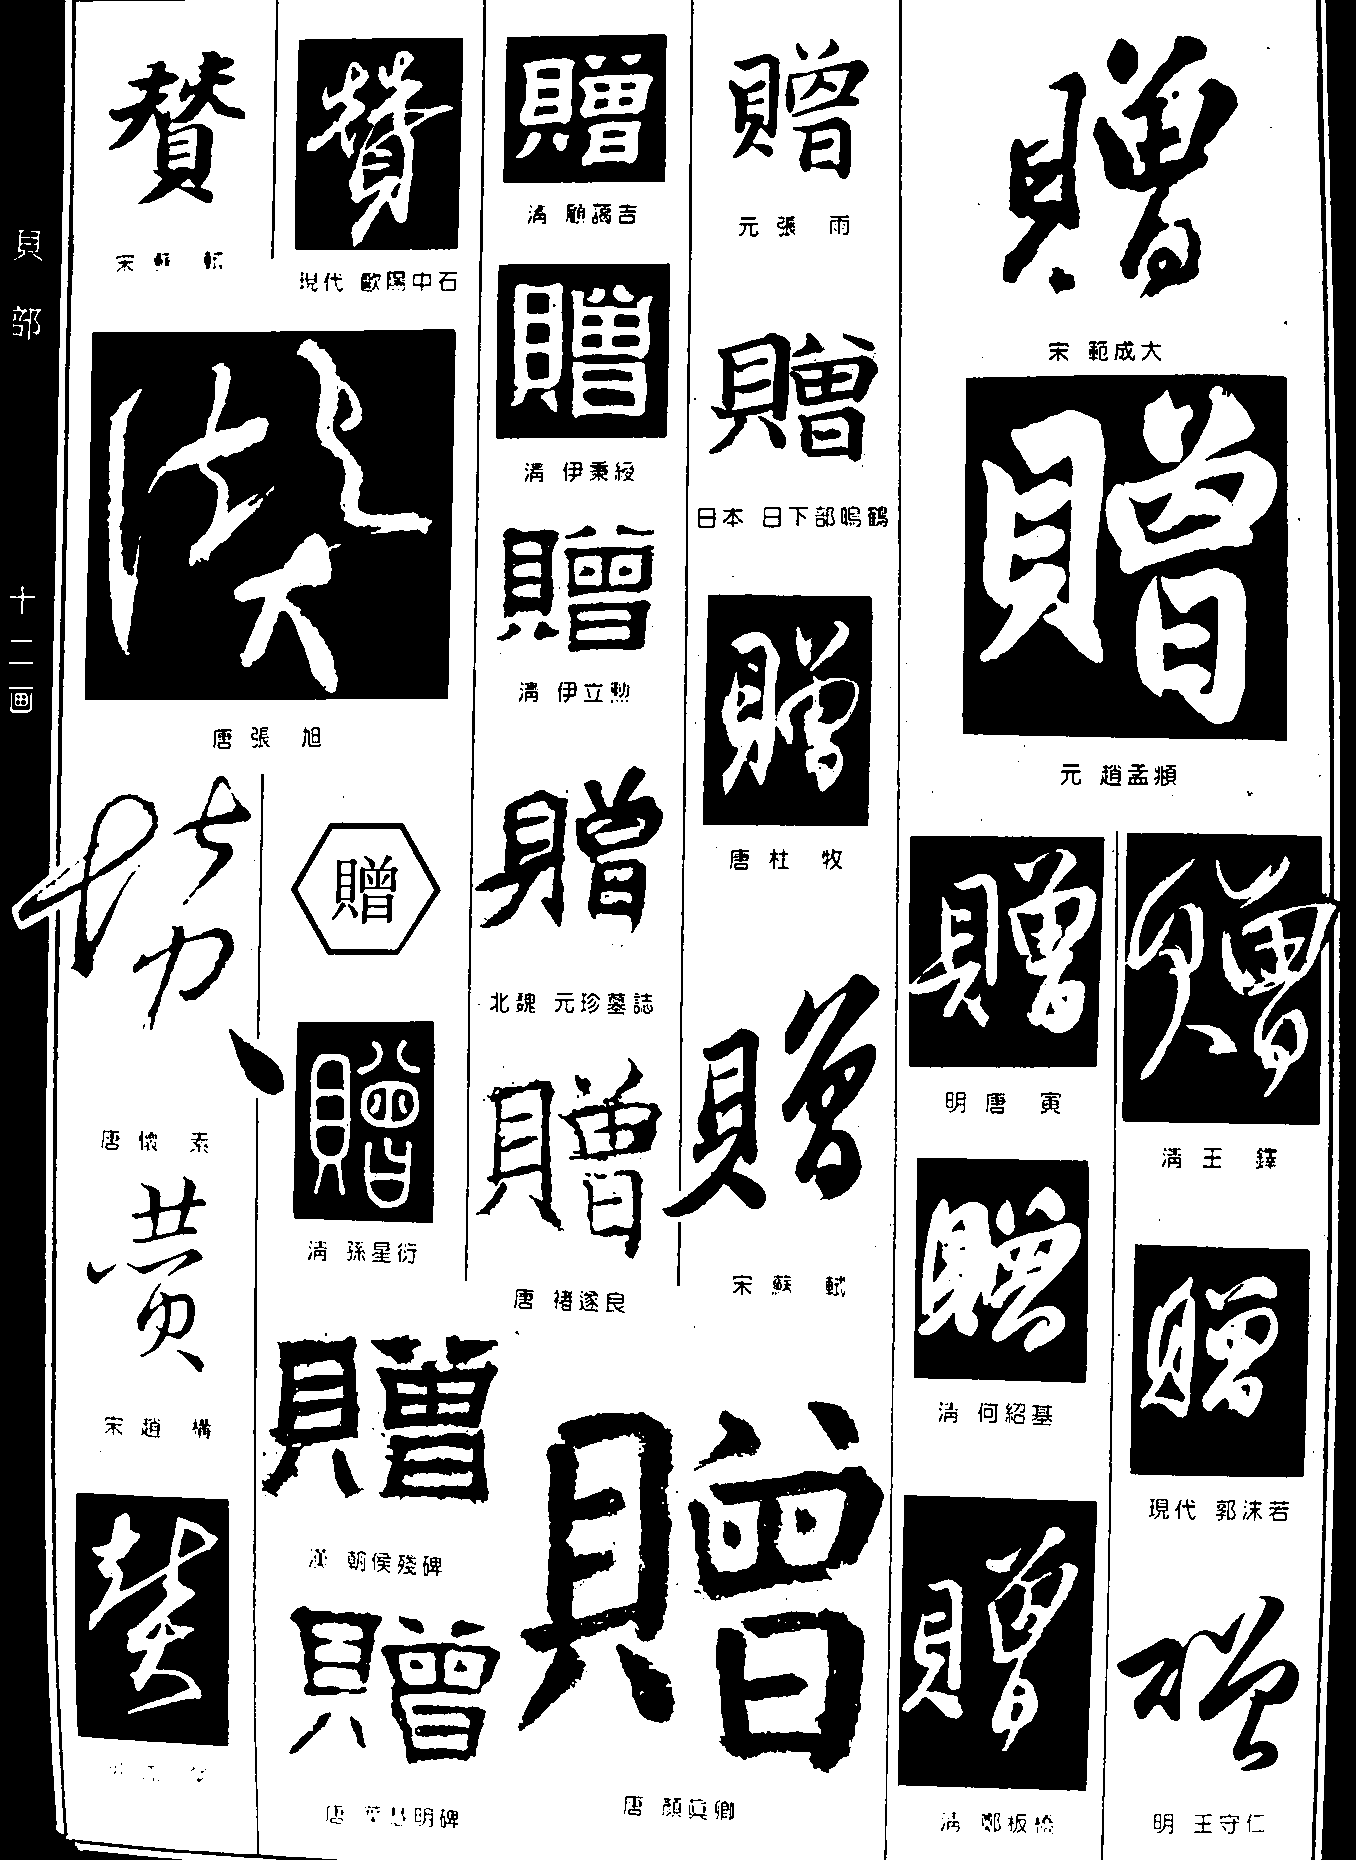 貝部
十二画
贊
宋 蘇軾
贊
現代 歐陽中石
贊
唐 張旭
贊
唐 懷素
贊
宋 趙構
贊
贈
贈
清 孫星衍
贈
漢 朝侯殘碑
贈
唐 葉慧明碑
贈
清 顧藹吉
贈
清 伊秉綬
贈
清 伊立勲
贈
北魏 元珍墓誌
贈
唐 褚遂良
贈
唐 顏真卿
贈
元 張雨
贈
日本 日下部鳴鶴
贈
唐 杜牧
贈
宋 蘇軾
贈
宋 範成大
贈
元 趙孟頫
贈
明 唐寅
贈
清 何紹基
贈
清 鄭板橋
贈
清 王鐸
贈
現代 郭沫若
贈
明 王守仁